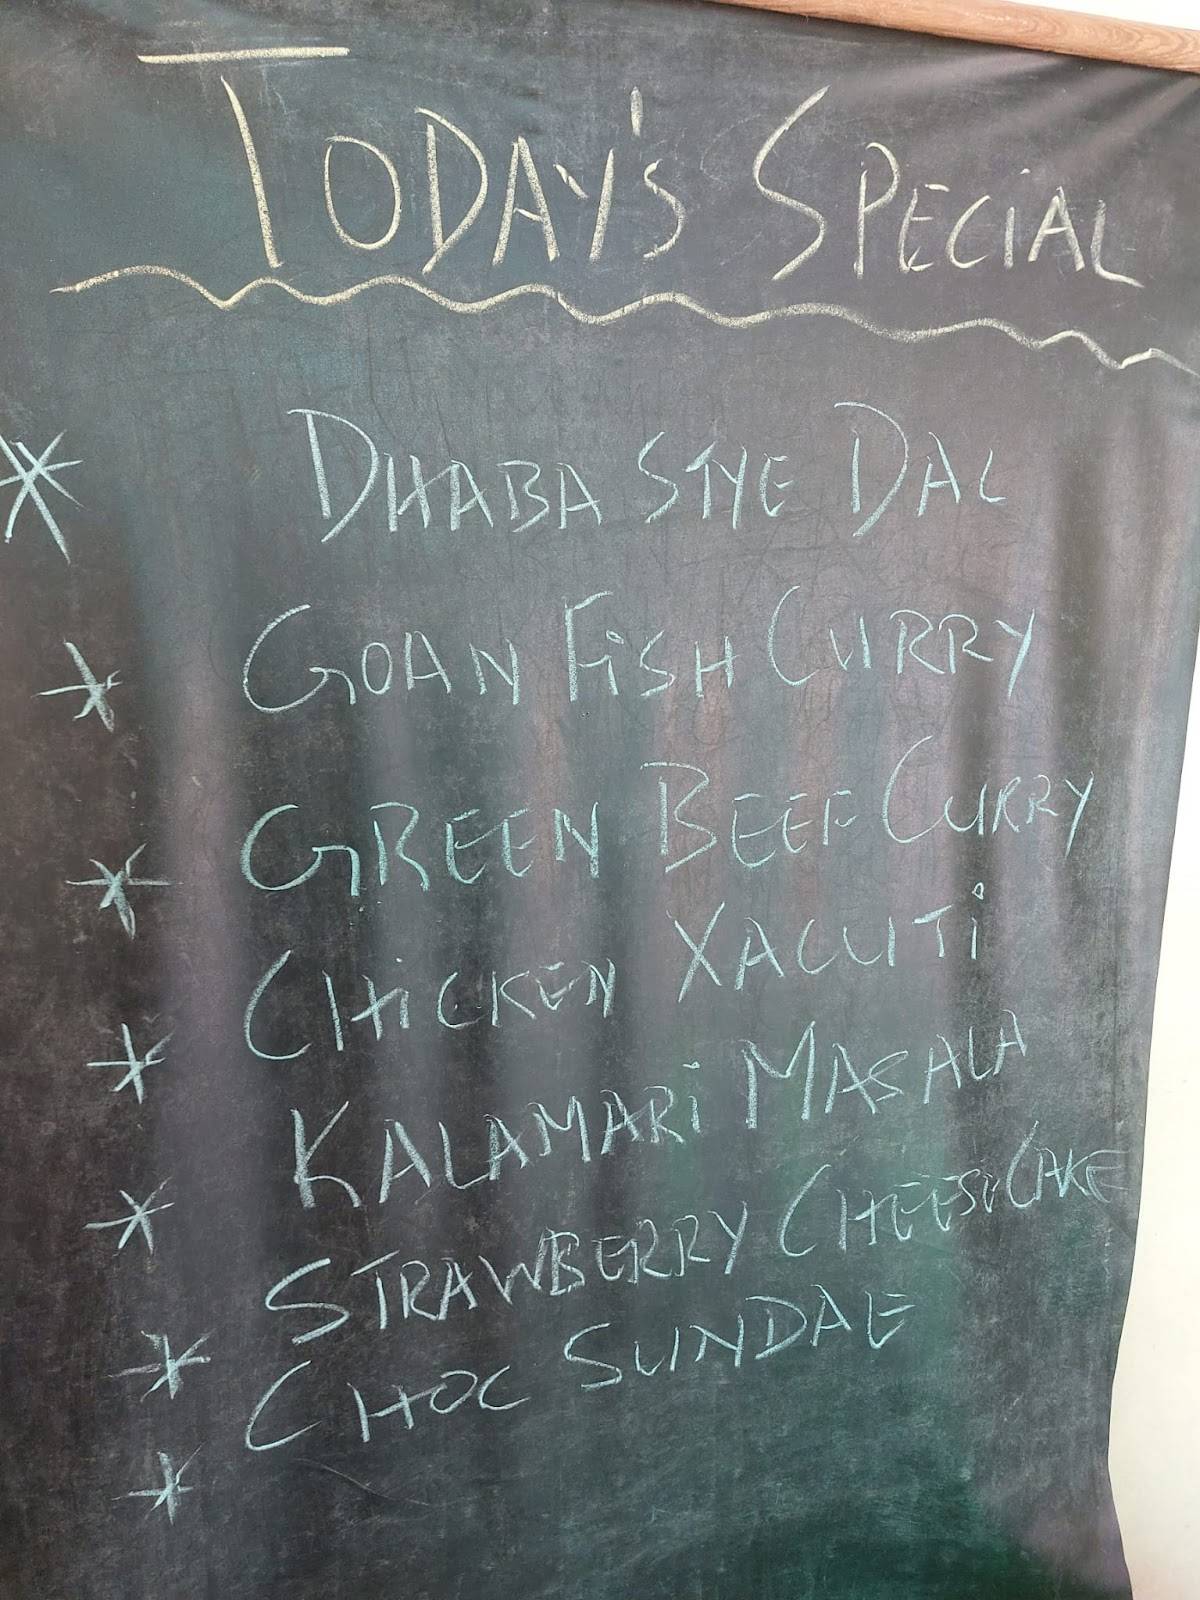 TODAY'S SPECIAL
* DHABA STYE DAL
* GOAN FISH CURRY
* GREEN BEEF CURRY
* CHICKEN XACUTI
* KALAMARI MASALA
* STRAWBERRY CHEESECAKE
* CHOC SUNDAE